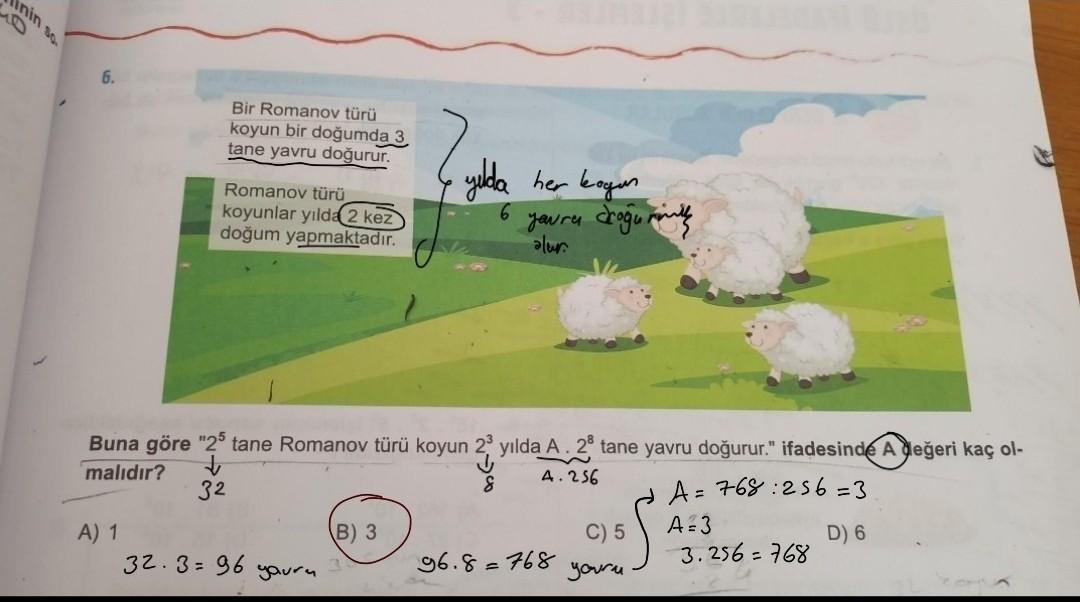 6.
Bir Romanov türü
koyun bir doğumda 3
tane yavru doğurur.
Romanov türü
koyunlar yılda 2 kez
doğum yapmaktadır.
yılda her koyun
6 yavru doğurmuş
olur.
Buna göre "2⁵ tane Romanov türü koyun 2³ yılda A . 2⁸ tane yavru doğurur." ifadesinde A değeri kaç ol-
malıdır?
32
8
A.256
A = 768 : 256 = 3
A = 3
3.256 = 768
A) 1 B) 3 C) 5 D) 6
32 . 3 = 96 yavru
96.8 = 768 yavru